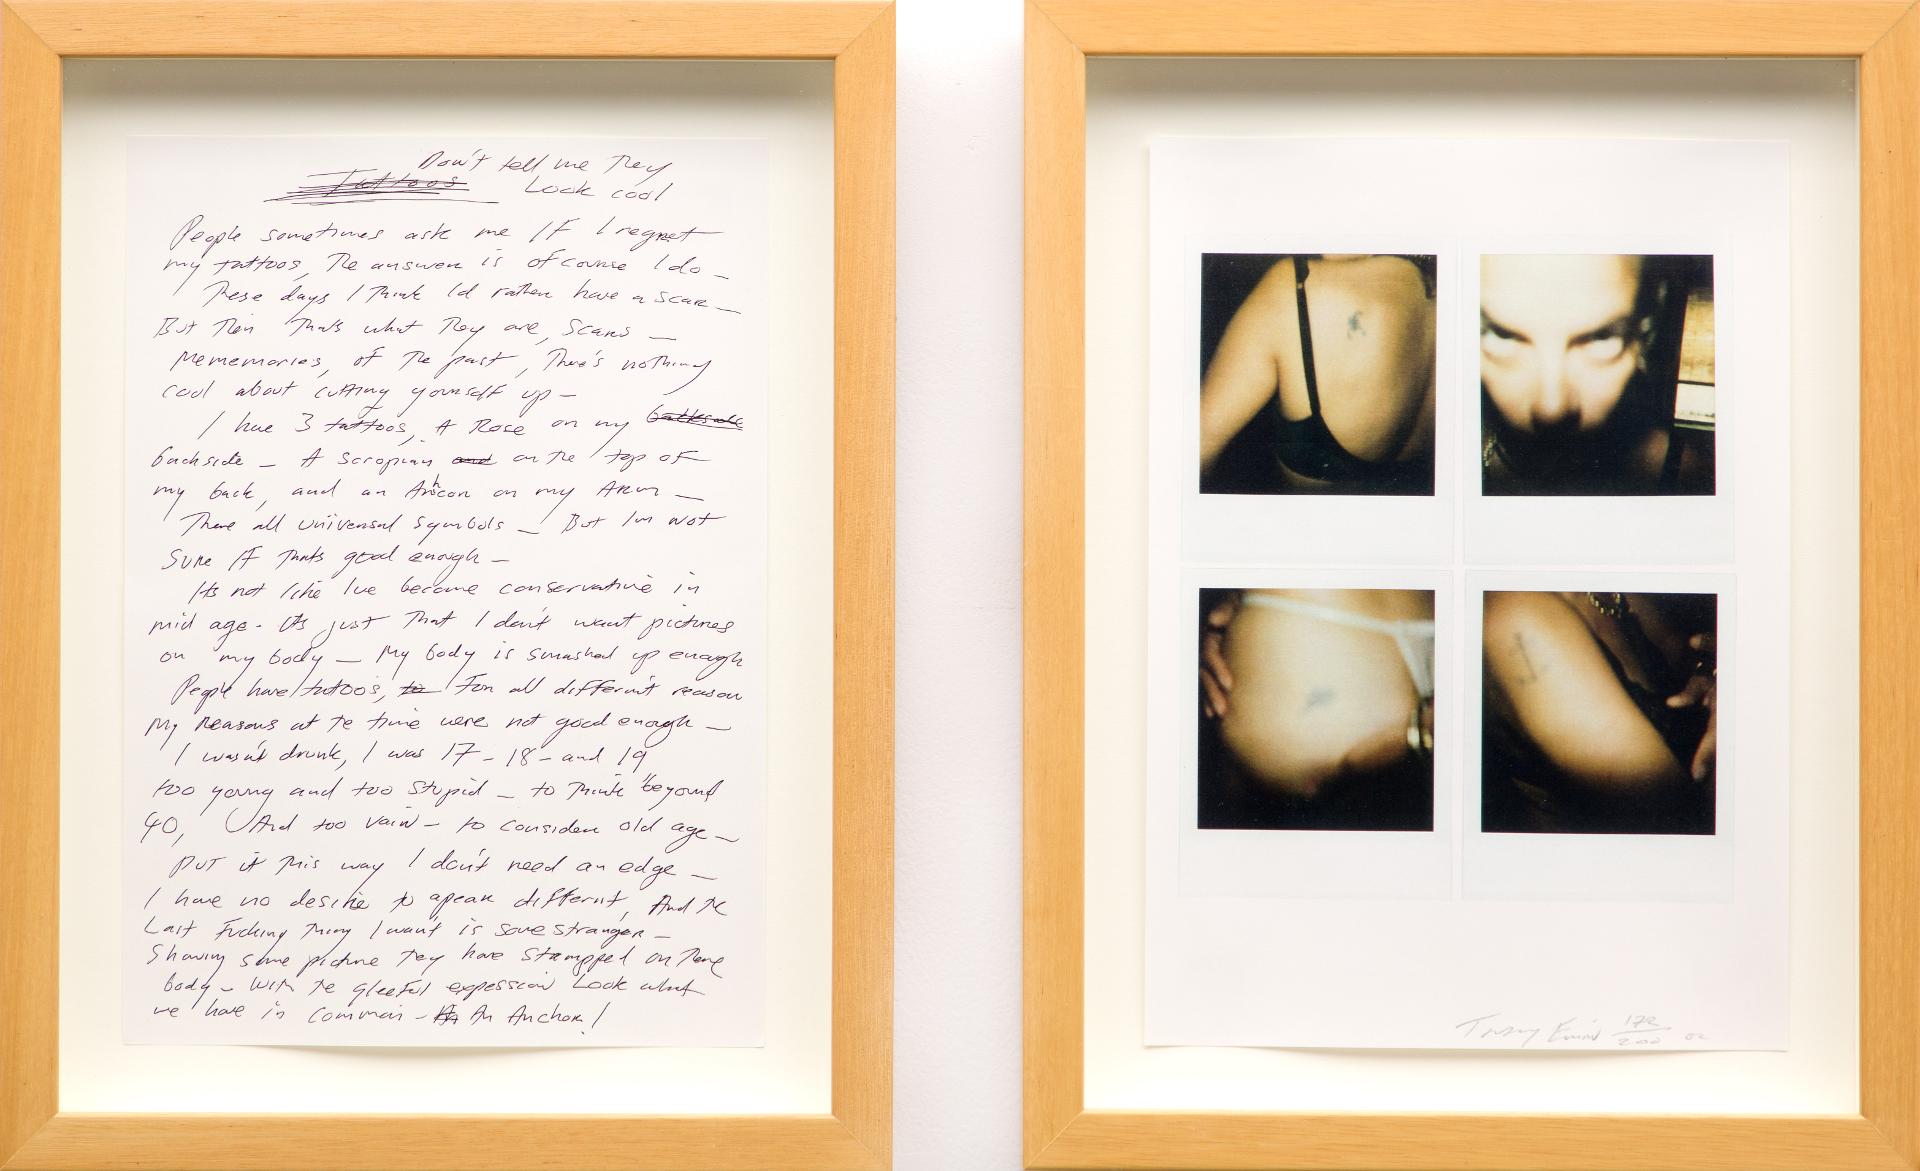 Don't tell me They
Tattoos Look cool
People sometimes ask me IF I regret
my tattoos, The answer is ofcourse I do _
These days I Think I'd rather have a scar _
But Then Thats what They are, scars _
Mememories, of The past, There's nothing
cool about cutting yourself up _
I have 3 tattoos, A Rose on my
backside _ A Scropian and on the top of
my back, and an Anhcor on my Arm _
There all universal symbols _ But Im not
Sure IF Thats good enough _
Its not like Ive become conservative in
mid age - Its just That I don't want pictures
on my body _ My body is smashed up enough
People have tutoos, to For all differint reason
My Reasons at te time were not good enough _
I wasn't drunk, I was 17 - 18 - and 19
too young and too Stupid _ to Think beyond
40, And too vain - to consider old age _
put it This way I don't need an edge _
I have no desire to apear differnt, And te
Last Fucking Thing I want is some stranger _
Showing some picture Tey have Stampped on There
body - With te gleeful expession Look what
we have in common - An An Anchor!
Tracey Emin 172/200 02